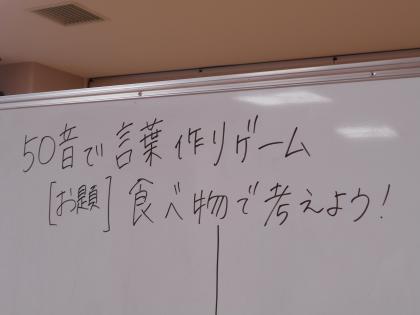 50音で言葉作りゲーム
[お題]食べ物で考えよう!